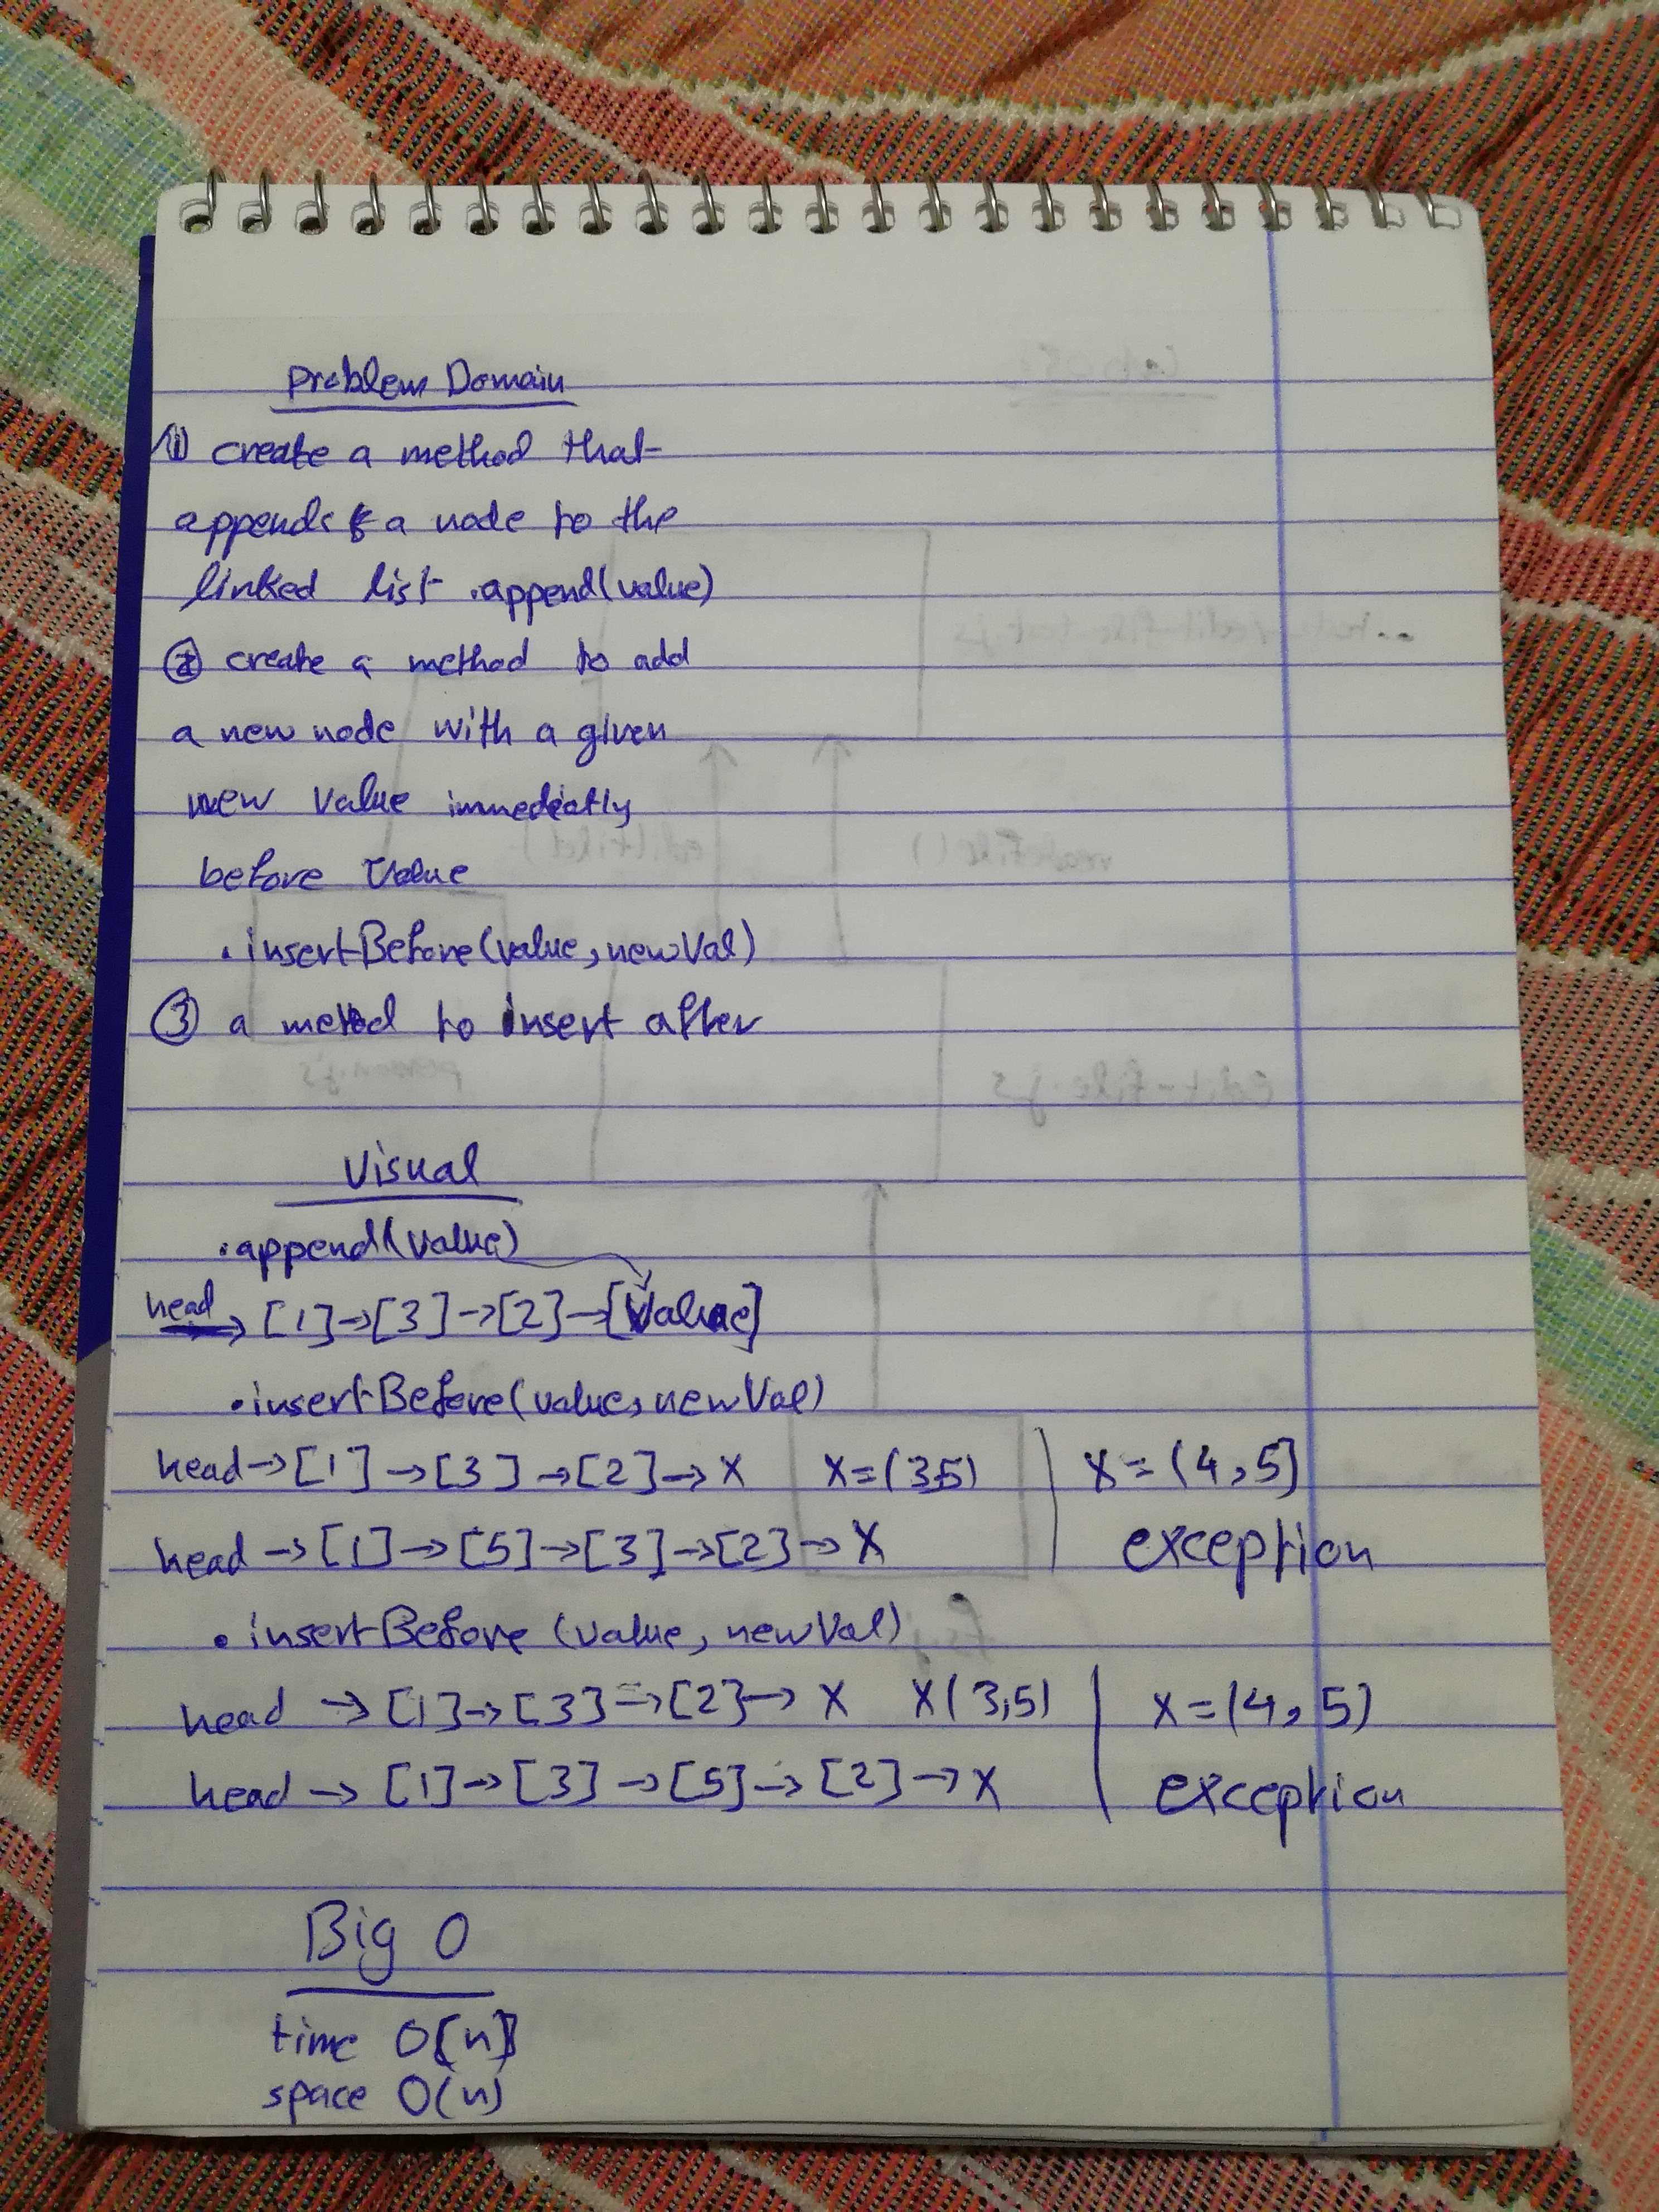 Problem Domain
① create a method that
appends a node to the
linked list .append(value)
② create a method to add
a new node with a given
new value immedeiatly
before value
.insertBefore(value,newVal)
③ a method to insert after
Visual
.append(value)
head → [1]→[3]→[2]→[Value]
.insertBefore(value,newVal)
head→[1]→[3]→[2]→X X=(3,5) | X=(4,5]
head→[1]→[5]→[3]→[2]→X | exception
.insertBefore (value, newVal)
head →[1]→[3]→[2]→ X X(3,5) | X=(4,5)
head → [1]→[3]→[5]→[2]→X | exception
Big O
time O[n]
space O(n)